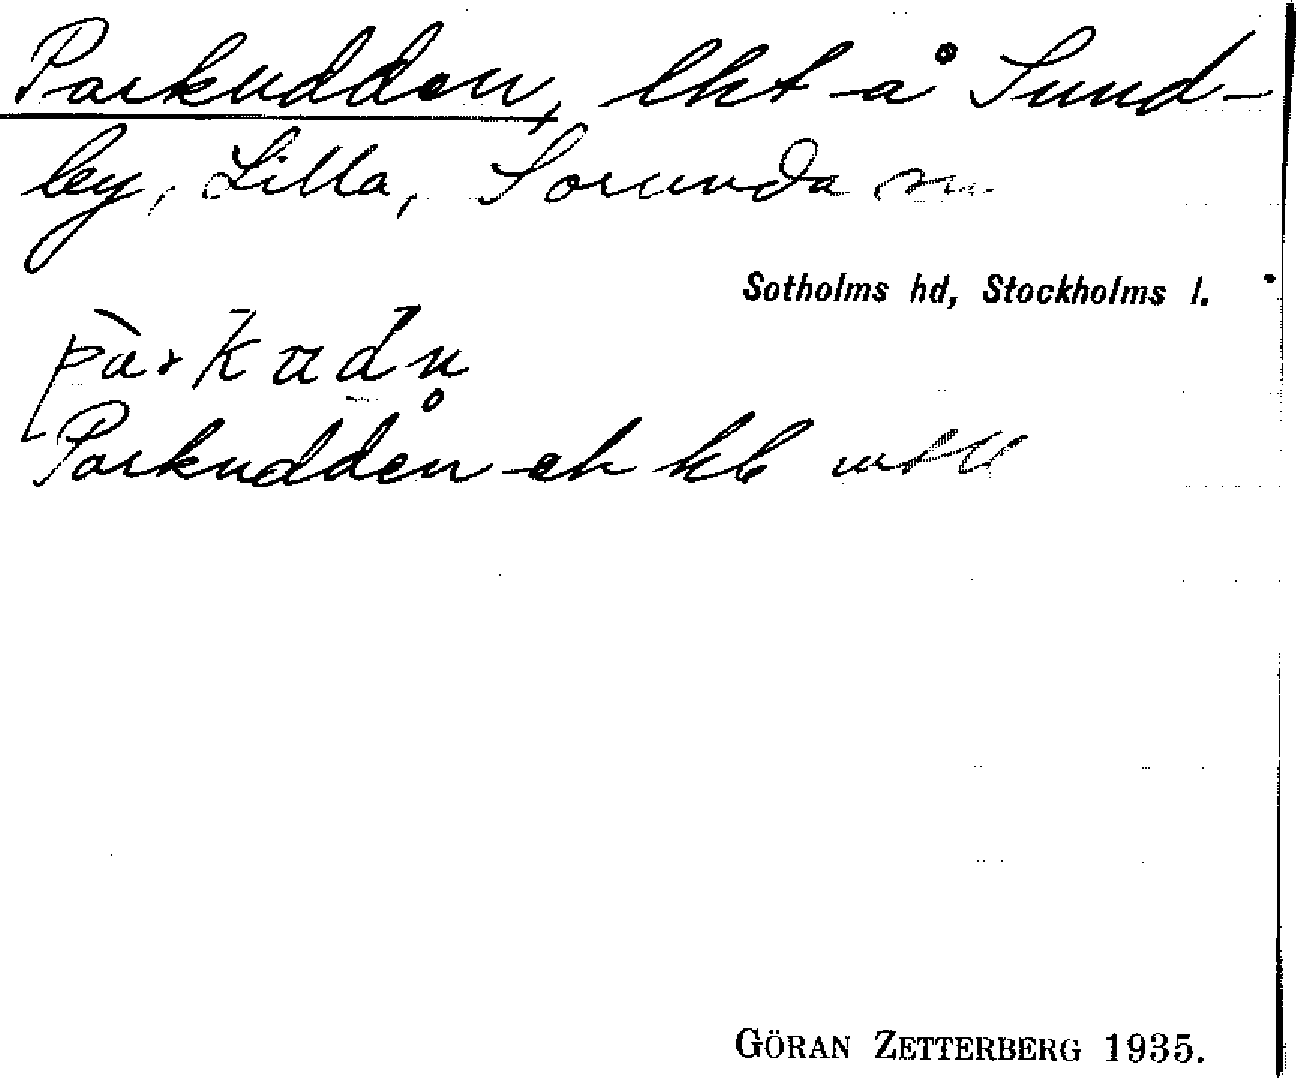 Parkudden, lht å Sund-
by, Lilla, Sorunda sn
Sotholms hd, Stockholms l.
Parkudden
GÖRAN ZETTERBERG 1935.